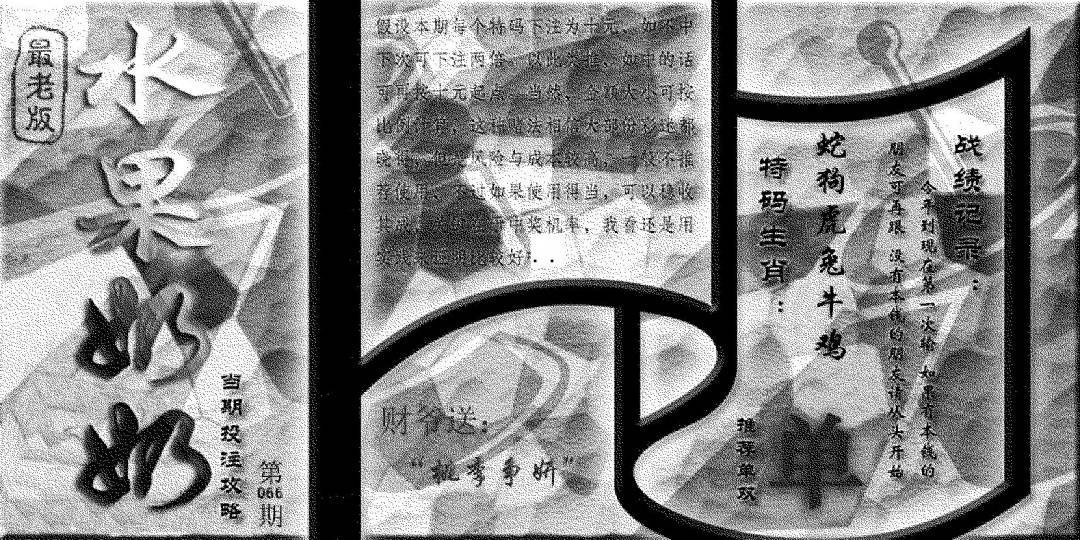 最老版
水果奶奶
当期投注攻略
第066期
假设本期每个特码下注为十元，如不中
下次可下注两倍，以此类推，如中的话
可再按十元起点，当然，金额大小可按
比例打算，这种赌法相信大部份彩迷都
晓得，但是风险与成本较高，一般不推
荐使用，不过如果使用得当，可以稳收
其成，
中奖机率，我看还是用
比较好...
财爷送：
“桃李争妍”
战绩记录：
今年到现在第一次输 如果有本钱的
朋友可再跟 没有本钱的朋友请从头开始
蛇狗虎兔牛鸡
特码生肖：
单
推荐单双